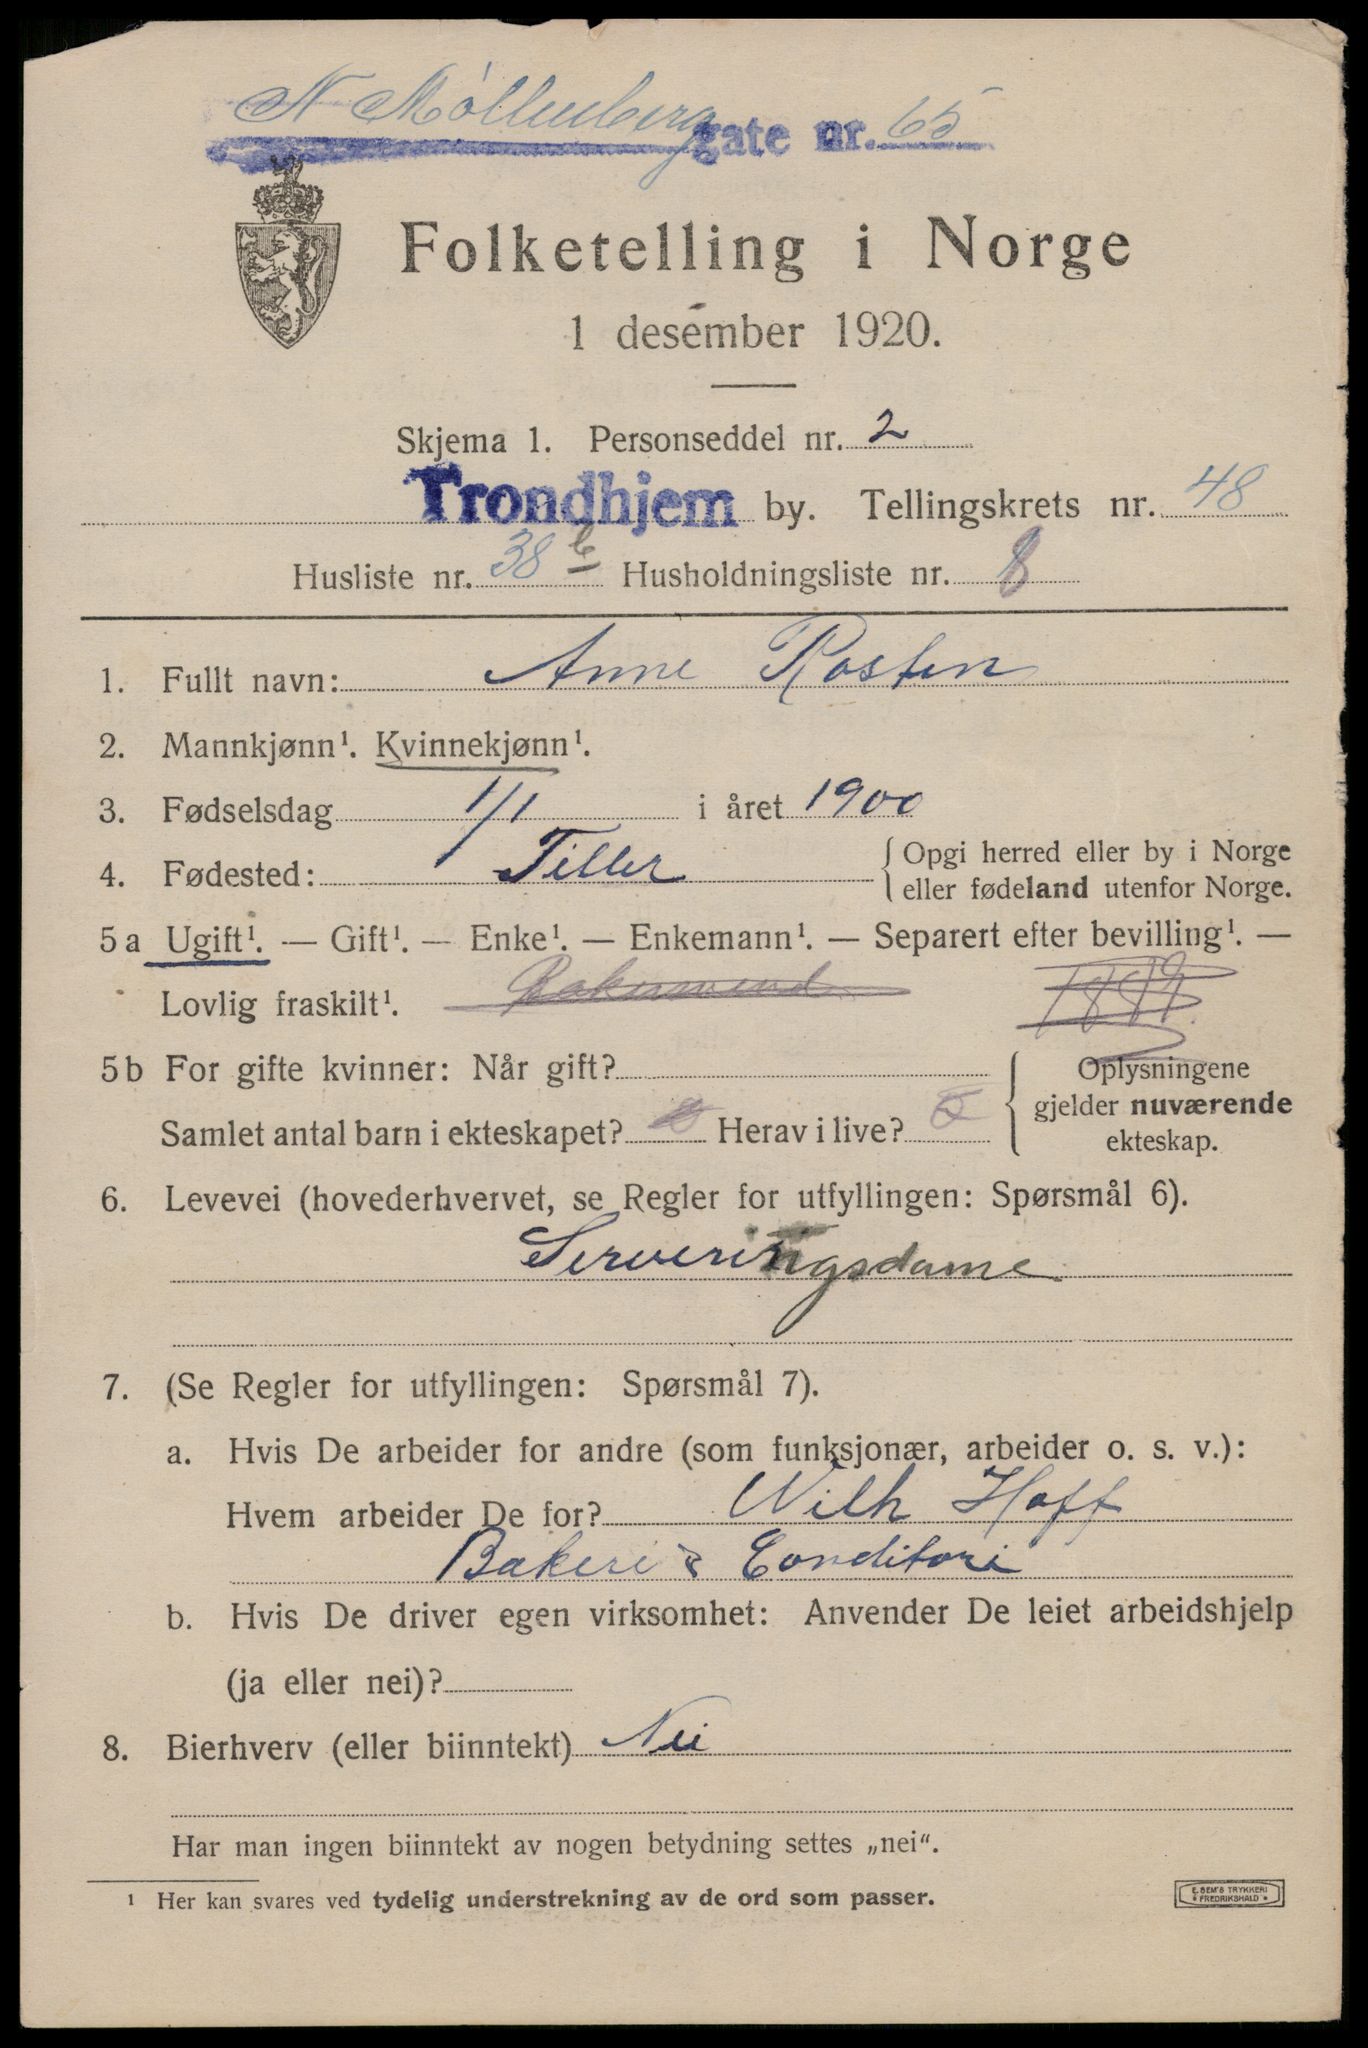 N Møllenberg gate nr. 65
Folketelling i Norge
1 desember 1920.
Skjema 1. Personseddel nr. 2
Trondhjem by. Tellingskrets nr. 48
Husliste nr. 38 b Husholdningsliste nr. 8
1. Fullt navn: Anne Rosten
2. Mannkjønn¹. Kvinnekjønn¹.
3. Fødselsdag 1/1 i året 1900
4. Fødested: Tiller { Opgi herred eller by i Norge
eller fødeland utenfor Norge.
5 a Ugift¹. — Gift¹. — Enke¹. — Enkemann¹. — Separert efter bevilling¹. —
Lovlig fraskilt¹.
5 b For gifte kvinner: Når gift?
Samlet antal barn i ekteskapet? Herav i live?
{ Oplysningene
gjelder nuværende
ekteskap.
6. Levevei (hovederhvervet, se Regler for utfyllingen: Spørsmål 6).
Serveringsdame
7. (Se Regler for utfyllingen: Spørsmål 7).
a. Hvis De arbeider for andre (som funksjonær, arbeider o. s. v.):
Hvem arbeider De for? Wilh Hoff
Bakeri & Conditori
b. Hvis De driver egen virksomhet: Anvender De leiet arbeidshjelp
(ja eller nei)?
8. Bierhverv (eller biinntekt) Nei
Har man ingen biinntekt av nogen betydning settes „nei“.
¹ Her kan svares ved tydelig understrekning av de ord som passer.
E. SEM'S TRYKKERI
* FREDRIKSHALD *